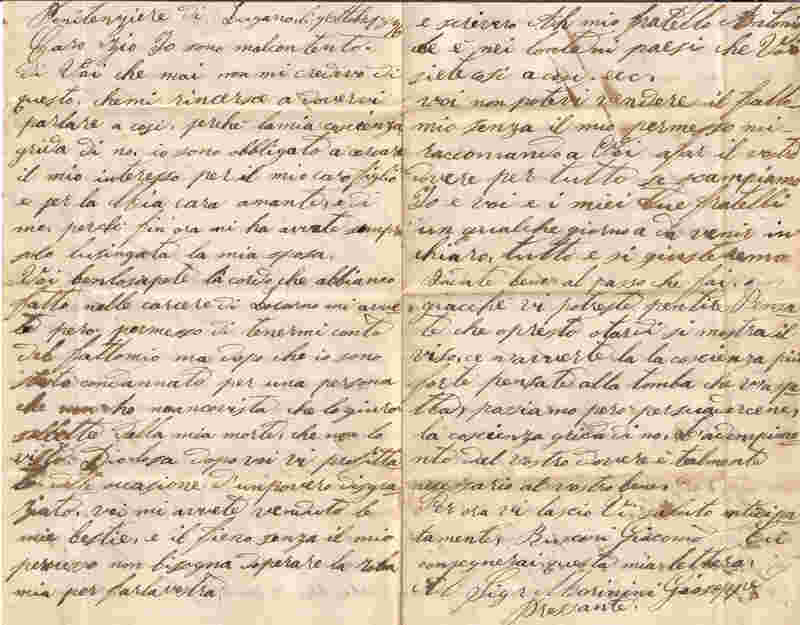 Penitenziere di Lugano, li
Caro Zio Io sono malcontento.
di Voi che mai non mi credavo di
questo, che mi rincersce a dovervi
parlare a cosi, perche la mia coscienza
grida di no, io sono obbligato a cercare
il mio interesso per il mio caro figlio
e per la mia cara amante, e di
me, perche fin'ora mi ha avvete sempri
solo lusingata la mia sposa.
Voi ben lo sapete l'acordo che abbiamo
fatto nelle carcere di Locarno mi avve
te pero, permesso di tenermi conto
del fatto mio ma dopo che io sono
stato condannato per una persona
che non ho no ancovista che lo giuro
della mia morte, che non lo
dopo voi vi profitta
te occasione d'un povero disgra
ziato, voi mi avvete venduto le
mie bestie, e il fieno senza il mio
non bisogna soperare la roba
mia per farla vostra
e scrivero Ah mio fratello Antoni
che è nei lontani paesi che Voi
siete cosi a cosi. ecc.
voi non potevi vendere il fatto
mio senza il mio permesso mi
raccomando a Voi a far il vostro
dovere per tutto se scampiamo
Io e voi e i miei due fratelli
un qualche giorno a da venir in
chiaro, tutto e si giusteremo
bene al passo che fai, o
giacche vi potreste pentire Pensa
te che o presto o tardi si mostra il
viso, e n'avverte la la coscienza più
forte pensate alla tomba che vi aspe
tta, pero
la coscienza grida di no, l'adempime
nto del vostro dovere è talmente
necessario al vostro bene.
Per ora vi lascio Vi saluto anticipa
tamente, Giacomo
consegnerai questa mia lettera,
Al Sigr Morinini Giuseppe
Pressante.